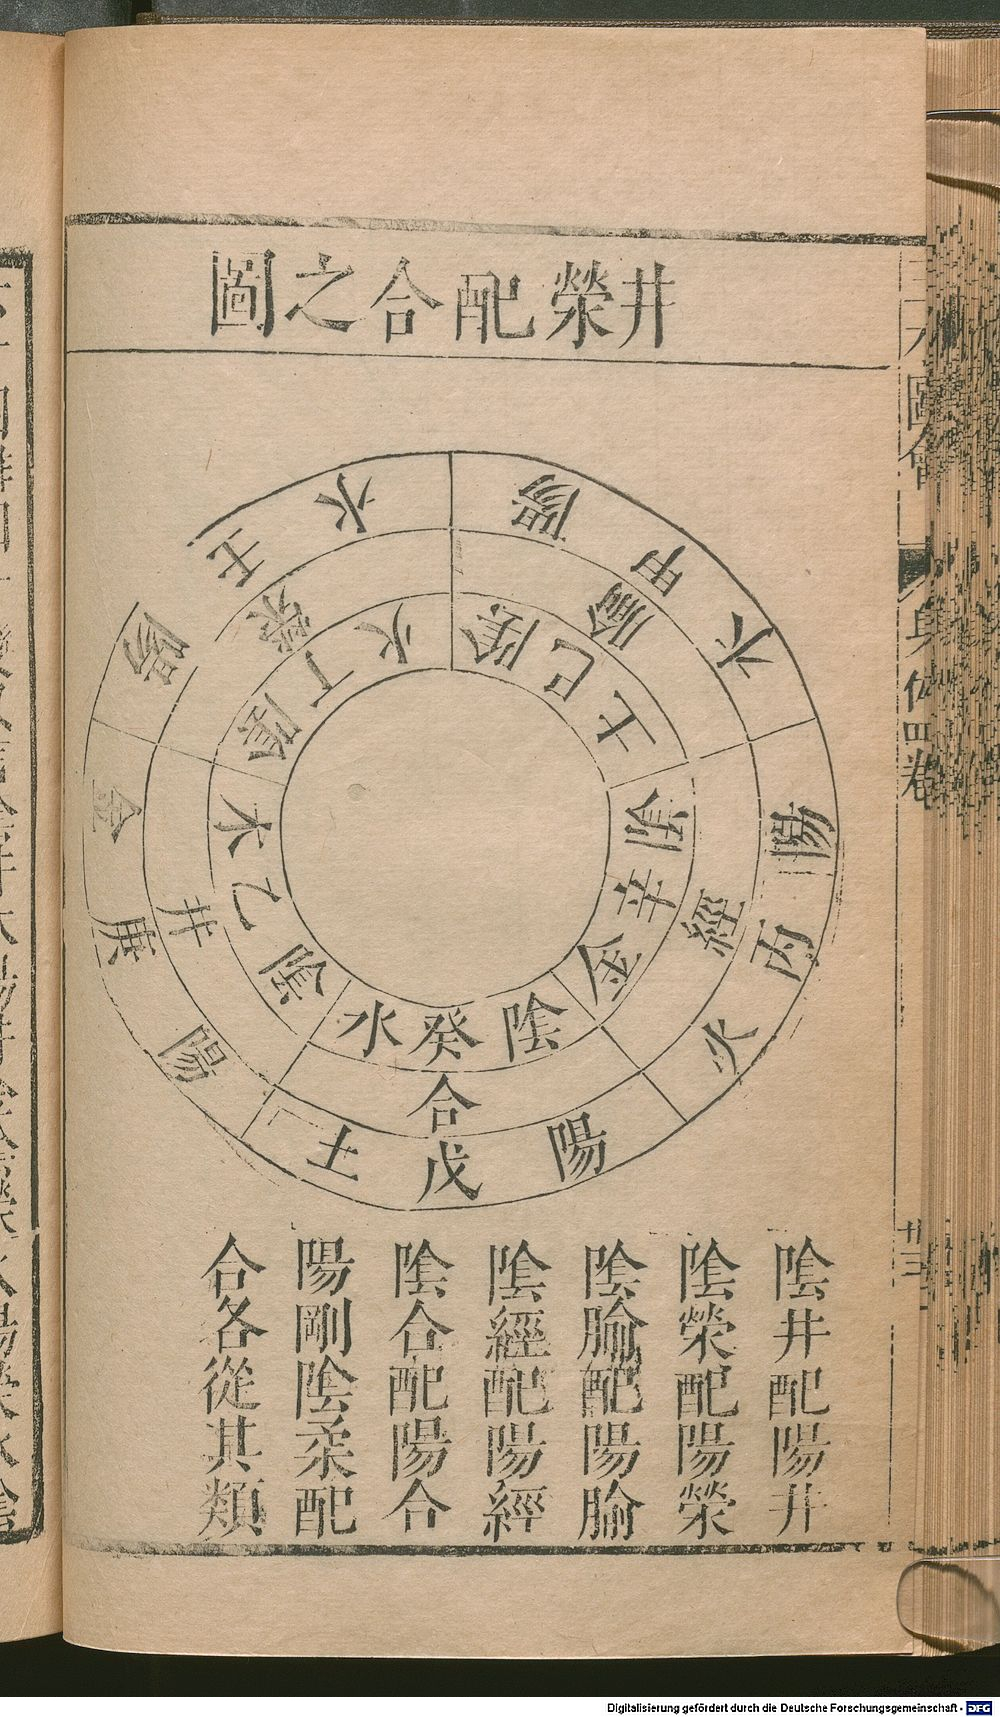 井滎配合之圖
陽甲木
腧
陰己土
陽丙火
經
陰辛金
陽戊土
合
陰癸水
陽庚金
井
陰乙木
陽壬水
滎
陰丁火
陰井配陽井
陰滎配陽滎
陰腧配陽腧
陰經配陽經
陰合配陽合
陽剛陰柔配
合各從其類
身體四卷
廿三
Digitalisierung gefördert durch die Deutsche Forschungsgemeinschaft - DFG